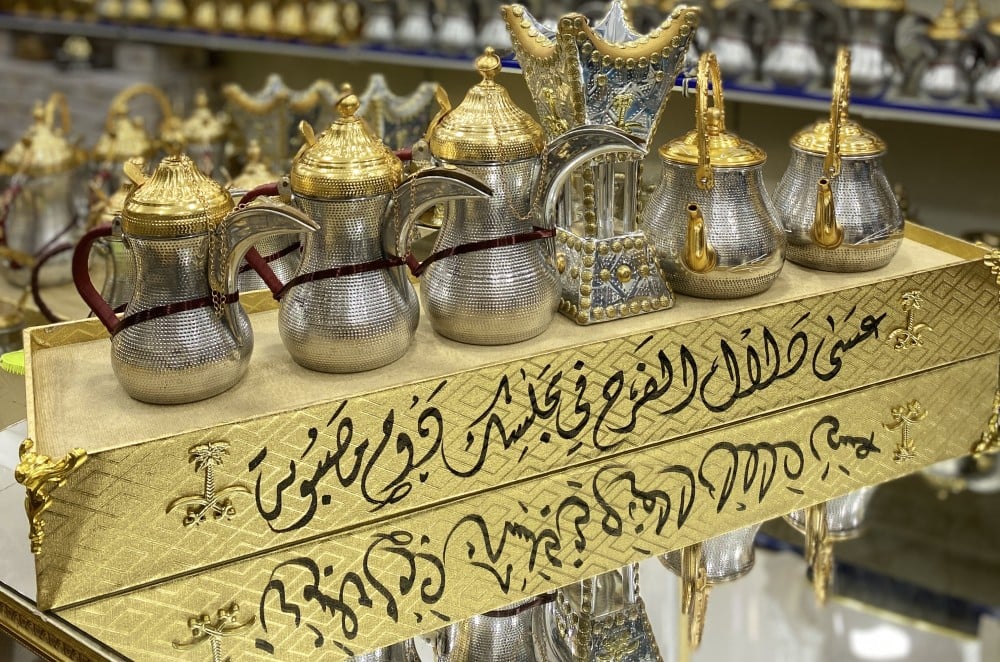 عسى دلال الفرح في مجلسك دوم مصبوبة